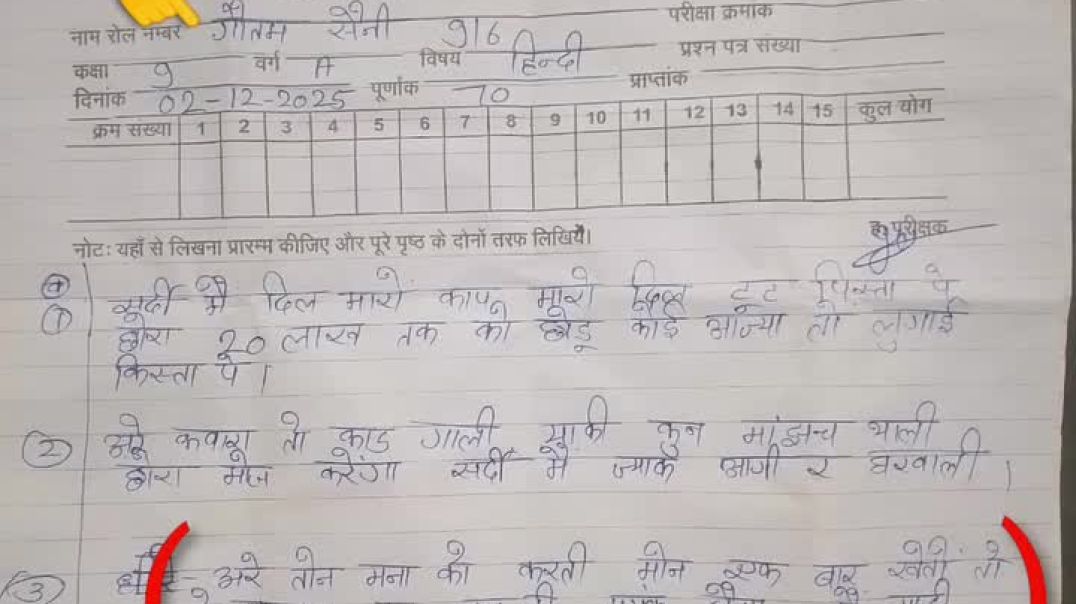 परीक्षा क्रमांक
नाम रोल नम्बर गौतम सैनी 916
प्रश्न पत्र संख्या
कक्षा 9 वर्ग A विषय हिन्दी
प्राप्तांक
दिनांक 02-12-2025 पूर्णांक 70
क्रम संख्या 1 2 3 4 5 6 7 8 9 10 11 12 13 14 15 कुल योग
ह० परीक्षक
नोट: यहाँ से लिखना प्रारम्भ कीजिए और पूरे पृष्ठ के दोनों तरफ लिखिये।
① सर्दी मै दिल मारो काप मारो दिल टूट पिस्ता पे
छोरा 20 लाख तक को छोडू कोई आज्या तो लुगाई
किस्ता पे।
② अरे कवारा तो काड गाली मांझच थाली
छोरा मोज करेंगा सर्दी मै ज्याके आगी र घरवाली।
③ अरे तोन मना को करती मोन एक बार खेती तो